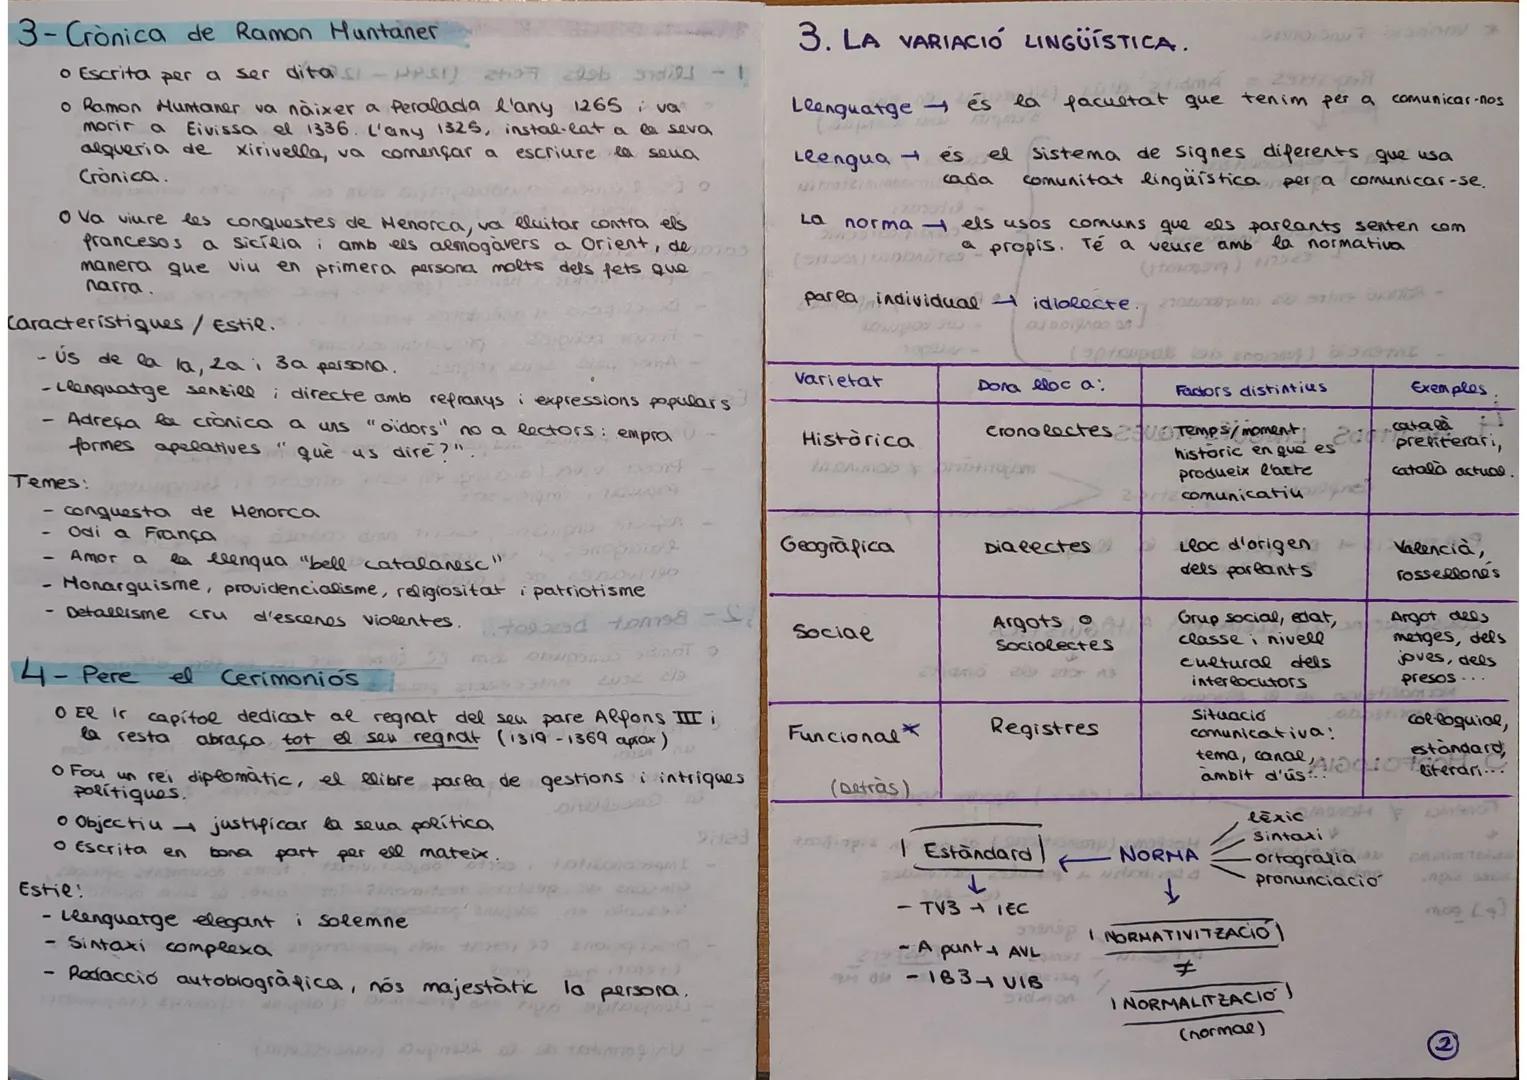 3- Crònica de Ramon Muntaner
o Escrita per a ser dita
o Ramon Muntaner va nàixer a Peralada l'any 1265 i va
morir a Eivissa el 1336. L'any 1325, instal·lat a la seva
alqueria de Xirivella, va començar a escriure la seua
Crònica.
o Va viure les conquestes de Menorca, va lluitar contra els
francesos a Sicília i amb els almogàvers a Orient, de
manera que viu en primera persona molts dels fets que
narra.
Característiques / Estil.
- Ús de la 1a, 2a i 3a persona.
- Llenguatge senzill i directe amb refranys i expressions populars
- Adreça la crònica a uns "oïdors" no a lectors: empra
formes apelatives "què us diré?".
Temes:
- conquesta de Menorca
- Odi a França
- Amor a la llengua "bell catalanesc"
- Monarquisme, providencialisme, religiositat i patriotisme
- Detallisme cru d'escenes violentes.
4- Pere el Cerimoniós
o El 1r capítol dedicat al regnat del seu pare Alfons III i
la resta abraça tot el seu regnat (1319-1369 aprox)
o Fou un rei diplomàtic, el llibre parla de gestions i intrigues
polítiques.
o Objectiu → justificar la seua política
o Escrita en bona part per ell mateix.
Estil:
- Llenguatge elegant i solemne
- Sintaxi complexa
- Redacció autobiogràfica, nós majestàtic 1a persona.
3. LA VARIACIÓ LINGÜÍSTICA.
Llenguatge → és la facultat que tenim per a comunicar-nos
Llengua → és el sistema de signes diferents que usa
cada comunitat lingüística per a comunicar-se.
La norma → els usos comuns que els parlants senten com
a propis. Té a veure amb la normativa
parla individual → idiolecte.
Varietat Dona lloc a: Factors distintius Exemples:
Històrica cronolectes Temps/moment
històric en què es
produeix l'acte
comunicatiu
català
preliterari,
català actual.
Geogràfica Dialectes Lloc d'origen
dels parlants
Valencià,
rossellonés
Social Argots o
Sociolectes
Grup social, edat,
classe i nivell
cultural dels
interlocutors
Argot dels
metges, dels
joves, dels
presos...
Funcional* Registres
(Detràs)
Situació
comunicativa:
tema, canal,
àmbit d'ús...
col·loquial,
estàndard,
literari...
Estàndard ← NORMA
lèxic
sintaxi
ortografia
pronunciació
↓
- TV3 → IEC
- A punt → AVL
- IB3 → UIB
↓
NORMATIVITZACIÓ
≠
NORMALITZACIÓ
(normal)
2